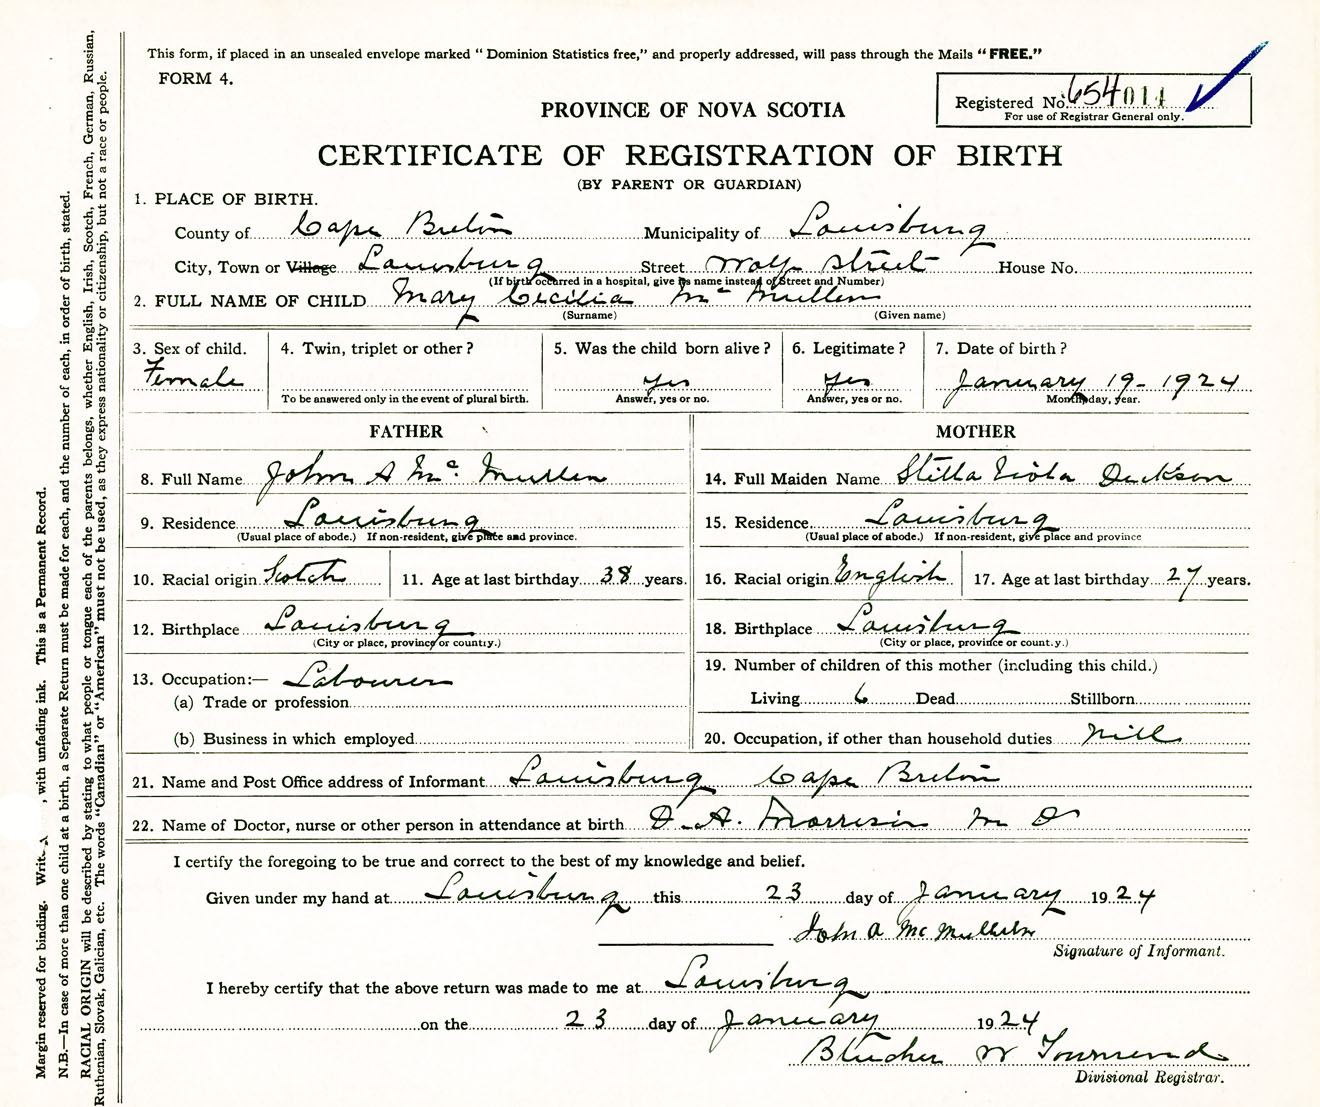 This form, if placed in an unsealed envelope marked "Dominion Statistics free," and properly addressed, will pass through the Mails "FREE."
FORM 4.
Registered No. 654014
For use of Registrar General only.
PROVINCE OF NOVA SCOTIA
CERTIFICATE OF REGISTRATION OF BIRTH
(BY PARENT OR GUARDIAN)
1. PLACE OF BIRTH.
County of Cape Breton Municipality of Louisburg
City, Town or Village Louisburg Street Wolfe Street House No.
(If birth occurred in a hospital, give its name instead of Street and Number)
2. FULL NAME OF CHILD Mary Cecilia Mc Mullen
(Surname) (Given name)
3. Sex of child. 4. Twin, triplet or other? 5. Was the child born alive? 6. Legitimate? 7. Date of birth?
Female yes Yes January 19 - 1924
To be answered only in the event of plural birth. Answer, yes or no. Answer, yes or no. Month, day, year.
FATHER MOTHER
8. Full Name John A Mc Mullen 14. Full Maiden Name Stella Viola Dickson
9. Residence Louisburg 15. Residence Louisburg
(Usual place of abode.) If non-resident, give place and province. (Usual place of abode.) If non-resident, give place and province
10. Racial origin Scotch 11. Age at last birthday 38 years. 16. Racial origin English 17. Age at last birthday 27 years.
12. Birthplace Louisburg 18. Birthplace Louisburg
(City or place, province or country.) (City or place, province or country.)
13. Occupation:— Labourer 19. Number of children of this mother (including this child.)
(a) Trade or profession Living 6 Dead Stillborn
(b) Business in which employed 20. Occupation, if other than household duties Nill
21. Name and Post Office address of Informant Louisburg Cape Breton
22. Name of Doctor, nurse or other person in attendance at birth D. A. Morrison M D
I certify the foregoing to be true and correct to the best of my knowledge and belief.
Given under my hand at Louisburg this 23 day of January 1924
John A McMullen
Signature of Informant.
I hereby certify that the above return was made to me at Louisburg
on the 23 day of January 1924
Blucher W Townsend
Divisional Registrar.
Margin reserved for binding. Write, with unfading ink. This is a Permanent Record.
N.B.—In case of more than one child at a birth, a Separate Return must be made for each, and the number of each, in order of birth, stated.
RACIAL ORIGIN will be described by stating to what people or tongue each of the parents belongs, whether English, Irish, Scotch, French, German, Russian,
Ruthenian, Slovak, Galician, etc. The words "Canadian" or "American" must not be used, as they express nationality or citizenship, but not a race or people.